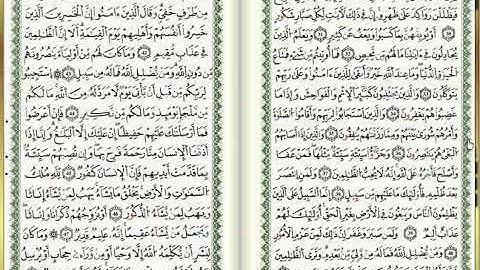 فَيَظْلَلْنَ رَوَاكِدَ عَلَىٰ ظَهْرِهِۦٓ إِنَّ فِى ذَٰلِكَ لَـَٔايَـٰتٍ لِّكُلِّ صَبَّارٍ شَكُورٍ
٣٣ أَوْ يُوبِقْهُنَّ بِمَا كَسَبُوا۟ وَيَعْفُ عَن كَثِيرٍ ٣٤ وَيَعْلَمَ ٱلَّذِينَ
يُجَـٰدِلُونَ فِىٓ ءَايَـٰتِنَا مَا لَهُم مِّن مَّحِيصٍ ٣٥ فَمَآ أُوتِيتُم مِّن شَىْءٍ فَمَتَـٰعُ
ٱلْحَيَوٰةِ ٱلدُّنْيَا وَمَا عِندَ ٱللَّهِ خَيْرٌ وَأَبْقَىٰ لِلَّذِينَ ءَامَنُوا۟ وَعَلَىٰ رَبِّهِمْ
يَتَوَكَّلُونَ ٣٦ وَٱلَّذِينَ يَجْتَنِبُونَ كَبَـٰٓئِرَ ٱلْإِثْمِ وَٱلْفَوَٰحِشَ وَإِذَا مَا
غَضِبُوا۟ هُمْ يَغْفِرُونَ ٣٧ وَٱلَّذِينَ ٱسْتَجَابُوا۟ لِرَبِّهِمْ وَأَقَامُوا۟ ٱلصَّلَوٰةَ
وَأَمْرُهُمْ شُورَىٰ بَيْنَهُمْ وَمِمَّا رَزَقْنَـٰهُمْ يُنفِقُونَ ٣٨ وَٱلَّذِينَ إِذَآ أَصَابَهُمُ
ٱلْبَغْىُ هُمْ يَنتَصِرُونَ ٣٩ وَجَزَٰٓؤُا۟ سَيِّئَةٍ سَيِّئَةٌ مِّثْلُهَا فَمَنْ عَفَا
وَأَصْلَحَ فَأَجْرُهُۥ عَلَى ٱللَّهِ إِنَّهُۥ لَا يُحِبُّ ٱلظَّـٰلِمِينَ ٤٠ وَلَمَنِ ٱنتَصَرَ
بَعْدَ ظُلْمِهِۦ فَأُو۟لَـٰٓئِكَ مَا عَلَيْهِم مِّن سَبِيلٍ ٤١ إِنَّمَا ٱلسَّبِيلُ عَلَى ٱلَّذِينَ
يَظْلِمُونَ ٱلنَّاسَ وَيَبْغُونَ فِى ٱلْأَرْضِ بِغَيْرِ ٱلْحَقِّ أُو۟لَـٰٓئِكَ لَهُمْ
عَذَابٌ أَلِيمٌ ٤٢ وَلَمَن صَبَرَ وَغَفَرَ إِنَّ ذَٰلِكَ لَمِنْ عَزْمِ ٱلْأُمُورِ
٤٣ وَمَن يُضْلِلِ ٱللَّهُ فَمَا لَهُۥ مِن وَلِىٍّ مِّنۢ بَعْدِهِۦ وَتَرَى ٱلظَّـٰلِمِينَ
مِن طَرْفٍ خَفِىٍّ وَقَالَ ٱلَّذِينَ ءَامَنُوٓا۟ إِنَّ ٱلْخَـٰسِرِينَ ٱلَّذِينَ
خَسِرُوٓا۟ أَنفُسَهُمْ وَأَهْلِيهِمْ يَوْمَ ٱلْقِيَـٰمَةِ أَلَآ إِنَّ ٱلظَّـٰلِمِينَ
فِى عَذَابٍ مُّقِيمٍ ٤٥ وَمَا كَانَ لَهُم مِّنْ أَوْلِيَآءَ يَنصُرُونَهُم
مِّن دُونِ ٱللَّهِ وَمَن يُضْلِلِ ٱللَّهُ فَمَا لَهُۥ مِن سَبِيلٍ ٤٦ ٱسْتَجِيبُوا۟
لِرَبِّكُم مِّن قَبْلِ أَن يَأْتِىَ يَوْمٌ لَّا مَرَدَّ لَهُۥ مِنَ ٱللَّهِ مَا لَكُم
مِّن مَّلْجَإٍ يَوْمَئِذٍ وَمَا لَكُم مِّن نَّكِيرٍ ٤٧ فَإِنْ أَعْرَضُوا۟
فَمَآ أَرْسَلْنَـٰكَ عَلَيْهِمْ حَفِيظًا إِنْ عَلَيْكَ إِلَّا ٱلْبَلَـٰغُ وَإِنَّآ إِذَآ
أَذَقْنَا ٱلْإِنسَـٰنَ مِنَّا رَحْمَةً فَرِحَ بِهَا وَإِن تُصِبْهُمْ سَيِّئَةٌۢ
بِمَا قَدَّمَتْ أَيْدِيهِمْ فَإِنَّ ٱلْإِنسَـٰنَ كَفُورٌ ٤٨ لِّلَّهِ مُلْكُ
ٱلسَّمَـٰوَٰتِ وَٱلْأَرْضِ يَخْلُقُ مَا يَشَآءُ يَهَبُ لِمَن يَشَآءُ إِنَـٰثًا
وَيَهَبُ لِمَن يَشَآءُ ٱلذُّكُورَ ٤٩ أَوْ يُزَوِّجُهُمْ ذُكْرَانًا وَإِنَـٰثًا
وَيَجْعَلُ مَن يَشَآءُ عَقِيمًا إِنَّهُۥ عَلِيمٌ قَدِيرٌ ٥٠ وَمَا كَانَ
لِبَشَرٍ أَن يُكَلِّمَهُ ٱللَّهُ إِلَّا وَحْيًا أَوْ مِن وَرَآئِ حِجَابٍ أَوْ يُرْسِلَ